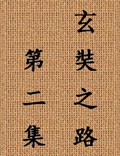 玄奘之路
第二集